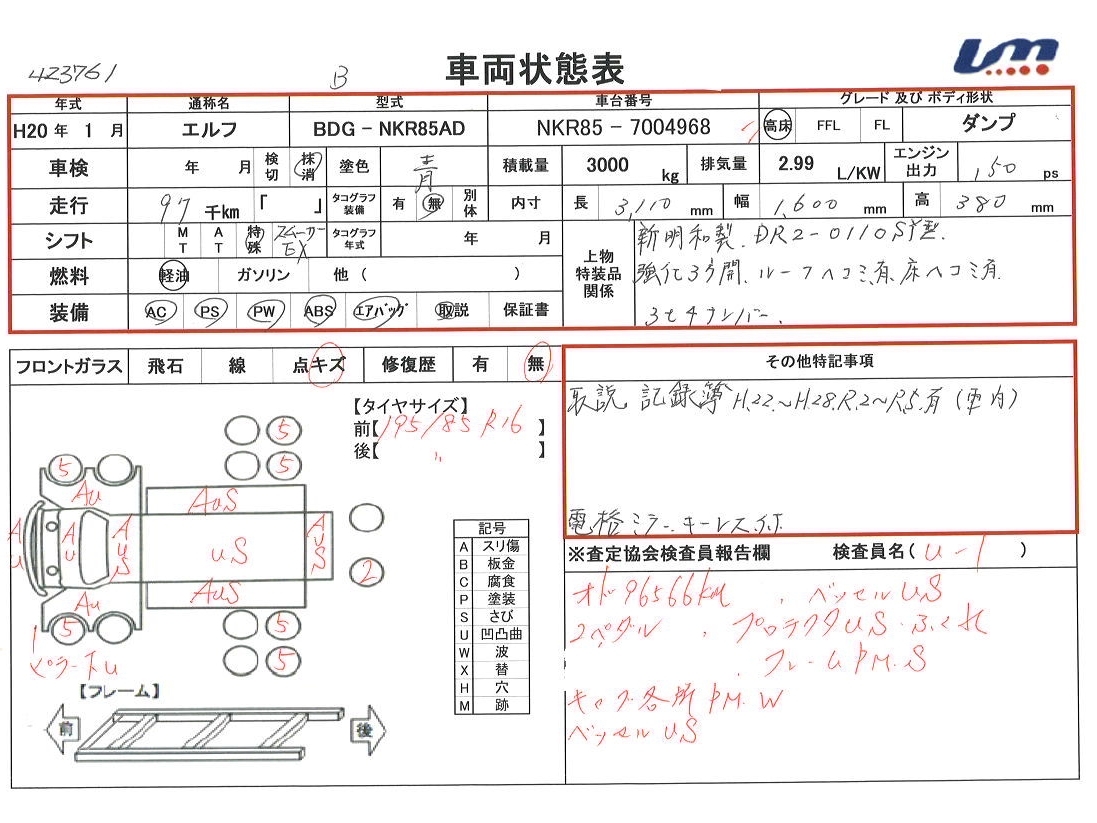 423761
B
車両状態表
um
年式 通称名 型式 車台番号 グレード 及び ボディ形状
H20 年 1 月 エルフ BDG - NKR85AD NKR85 - 7004968 高床 FFL FL ダンプ
車検 年 月 検切 抹消 塗色 青 積載量 3000 kg 排気量 2.99 L/KW エンジン出力 150 ps
走行 97 千km 「 」 タコグラフ装備 有 無 別体 内寸 長 3,110 mm 幅 1,600 mm 高 380 mm
シフト MT AT 特殊 スムーサーEX タコグラフ年式 年 月
燃料 軽油 ガソリン 他 ( )
装備 AC PS PW ABS エアバッグ 取説 保証書
上物特装品関係
新明和製. DR2-0110S型.
強化3方開. ルーフヘコミ有. 床ヘコミ有.
3七4ナンバー.
フロントガラス 飛石 線 点キズ 修復歴 有 無
その他特記事項
取説 記録簿 H.22.~H28.R.2~R.5.有 (車内)
電格ミラー. キーレス付.
【タイヤサイズ】
前【195/85 R16 】
後【 〃 】
5
5
5
Au
AuS
Au
Au
AuS
uS
AuS
2
Au
AuS
5
5
5
ピラー下u
【フレーム】
前
後
記号
A スリ傷
B 板金
C 腐食
P 塗装
S さび
U 凹凸曲
W 波
X 替
H 穴
M 跡
※査定協会検査員報告欄 検査員名( u-1 )
オド 96566km , ベッセルuS
2ペダル , プロテクタuS. ふくれ
フレームPM.S
キャブ各所PM.W
ベッセルuS